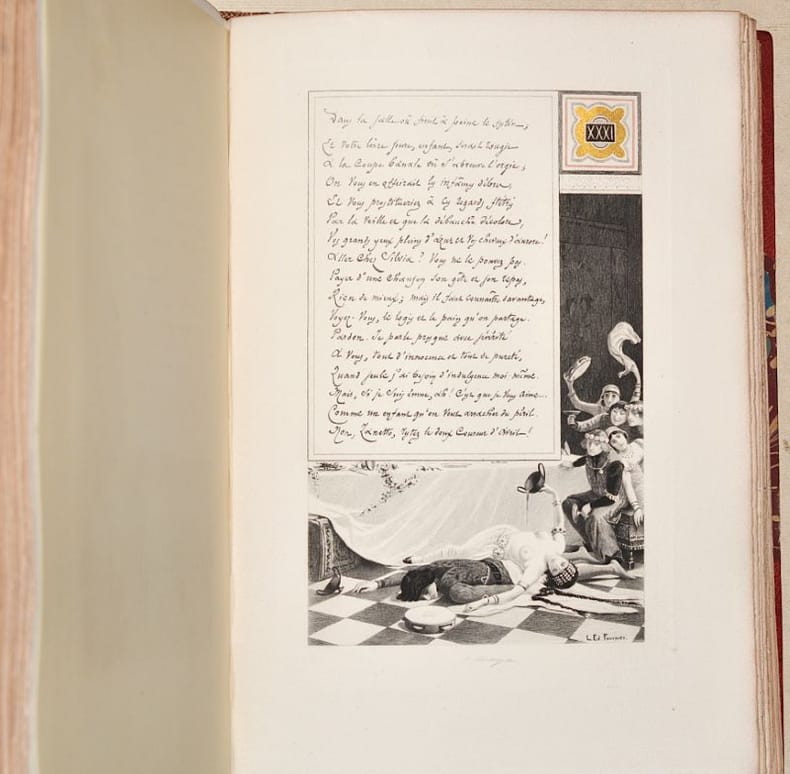 XXXI
Dans la salle où finit à peine le festin,
Et votre lèvre pure, enfant, serait rougie
A la Coupe banale où s'abreuve l'orgie ;
On vous en offrirait les infâmes débris,
Et vous prostitueriez à ces regards flétris
Par la veille et que la débauche décolore,
Vos grands yeux pleins d'azur et vos cheveux d'aurore !
Aller chez Silvia ? Vous ne le pouvez pas.
Payer d'une chanson son gîte et son repas,
Rien de mieux ; mais il faut connaître davantage,
Voyez-vous, le logis et le pain qu'on partage.
Pardon. Je parle presque avec sévérité
A vous, tout d'innocence et tout de pureté,
Quand seule j'ai besoin d'indulgence moi même.
Mais, si je suis émue, ah ! C'est que je vous aime...
Comme un enfant qu'on veut arracher du péril.
Non, Zanetto, restez le doux Coureur d'Avril !
L. Ed. Fournier.